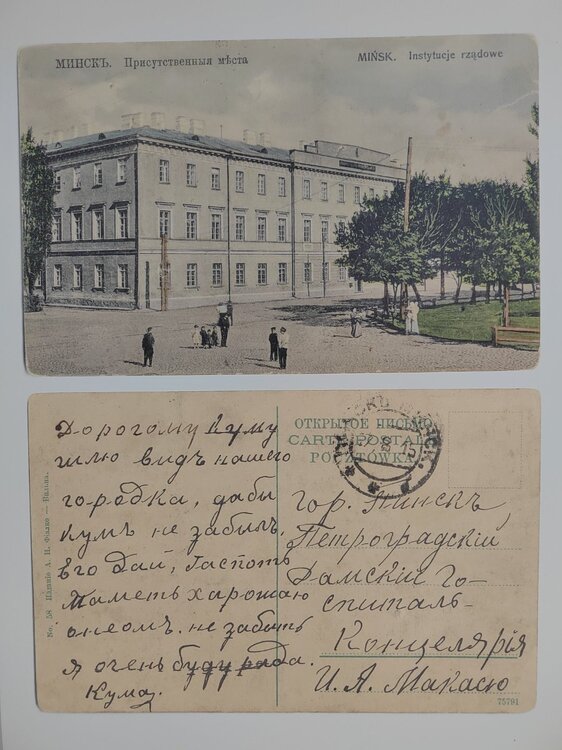 МИНСКЪ. Присутственныя мѣста
MIŃSK. Instytucje rządowe
Дорогому куму
шлю видъ нашего
городка, дабы
кумъ не забылъ,
его Дай, Гасноть
Паметь харошаю
онеомъ. не забыть
я очень буду рада.
Кума.
No. 58 Изданіе А. И. Фіалко — Вильна.
ОТКРЫТОЕ ПИСЬМО
CARTE POSTALE
POCZTÓWKA
гор. Минскъ,
Петроградскій
Дамскій Го-
спиталь-
Концелярія
И. А. Макасю
75791